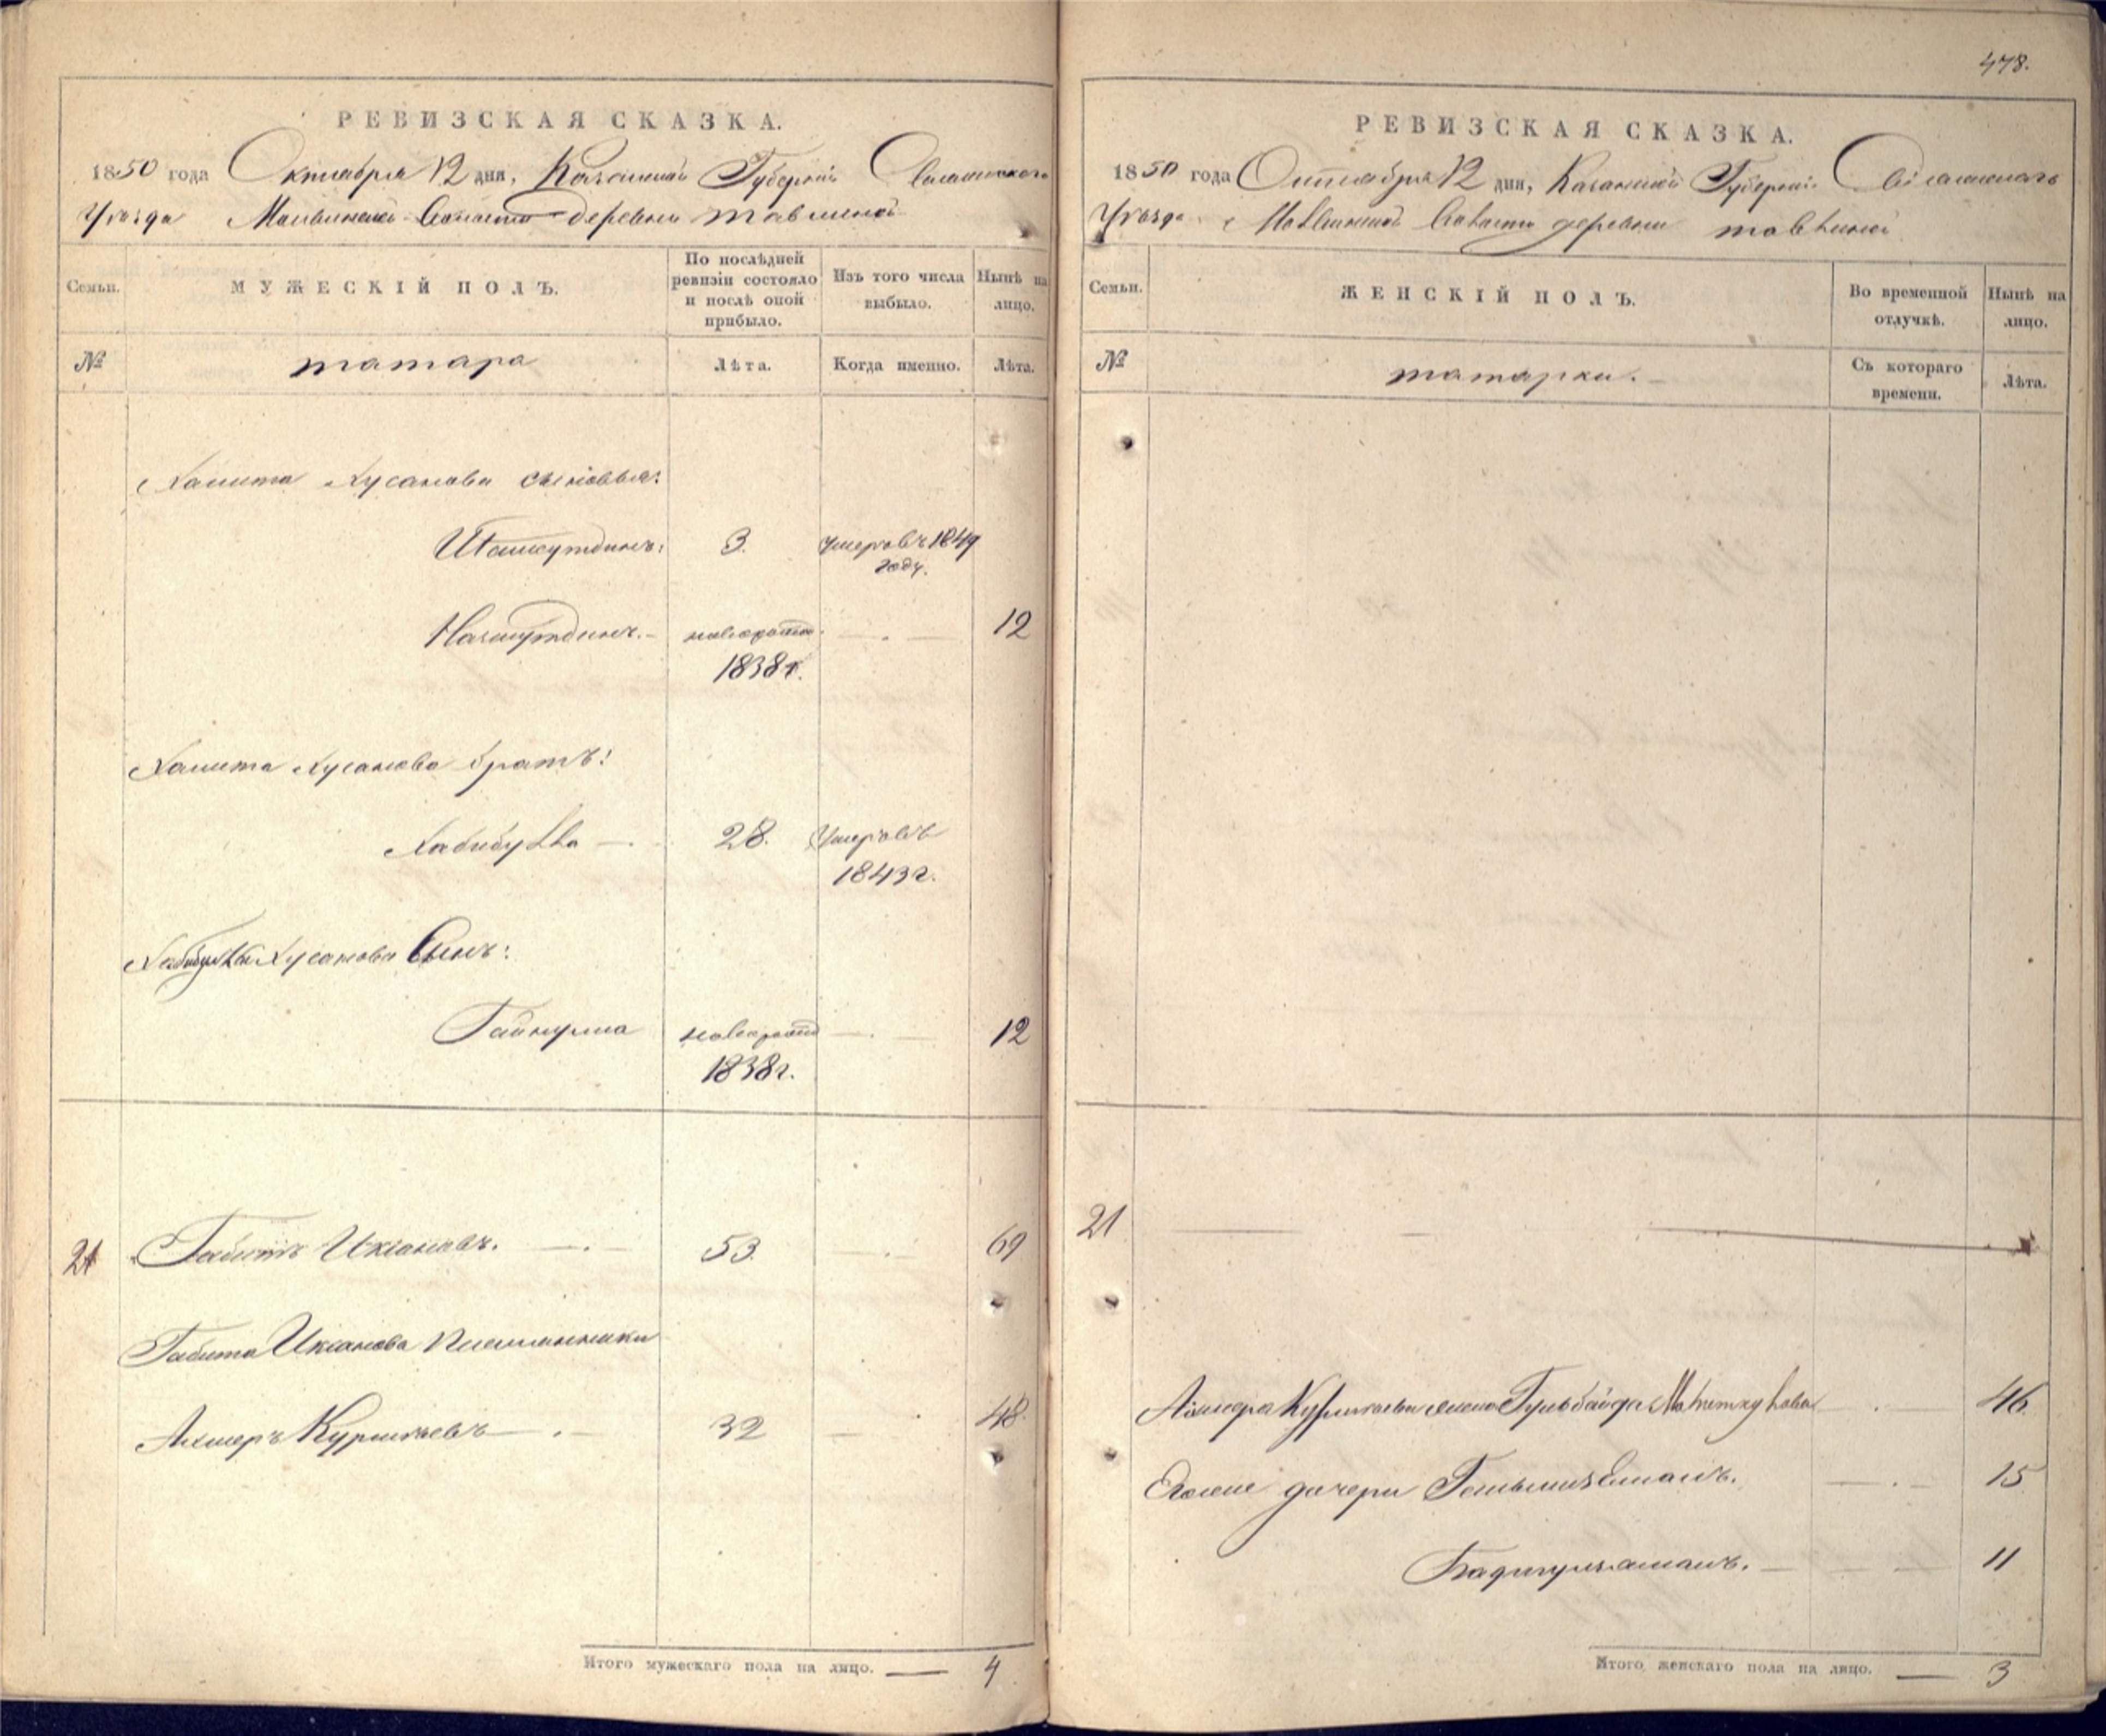 РЕВИЗСКАЯ СКАЗКА.
1850 года Октября 12 дня, Казанской Губернiи Свiяжскаго
Уѣзда деревни Тавлиной
Семьи.
МУЖЕСКIЙ ПОЛЪ.
По послѣдней ревизiи состояло и послѣ оной прибыло.
Изъ того числа выбыло.
Нынѣ на лицо.
№
татара
Лѣта.
Когда именно.
Лѣта.
Хамита Хусанова сыновья:
3. умеръ въ 1849
году.
новорожд. 12
1838 г.
Хамита Хусанова братъ:
Хабибулла 28. Умеръ въ
1843 г.
Хабибуллы Хусанова Сынъ:
Гайнулла новорожд 12
1838 г.
21 Габитъ Иксановъ. 53. 69
Габита Иксанова Племянники
Ахмеръ Курмаевъ 32 48.
Итого мужескаго пола на лицо. 4
478.
РЕВИЗСКАЯ СКАЗКА.
1850 года Октября 12 дня, Казанской Губернiи Свiяжскаго
Уѣзда Волости деревни Тавлиной
Семьи.
ЖЕНСКIЙ ПОЛЪ.
Во временной отлучкѣ.
Нынѣ на лицо.
№
татарки.
Съ котораго времени.
Лѣта.
21
Ахмера Курмаева жена Гульбайда 46.
Его же дочери 15
11
Итого женскаго пола на лицо. 3